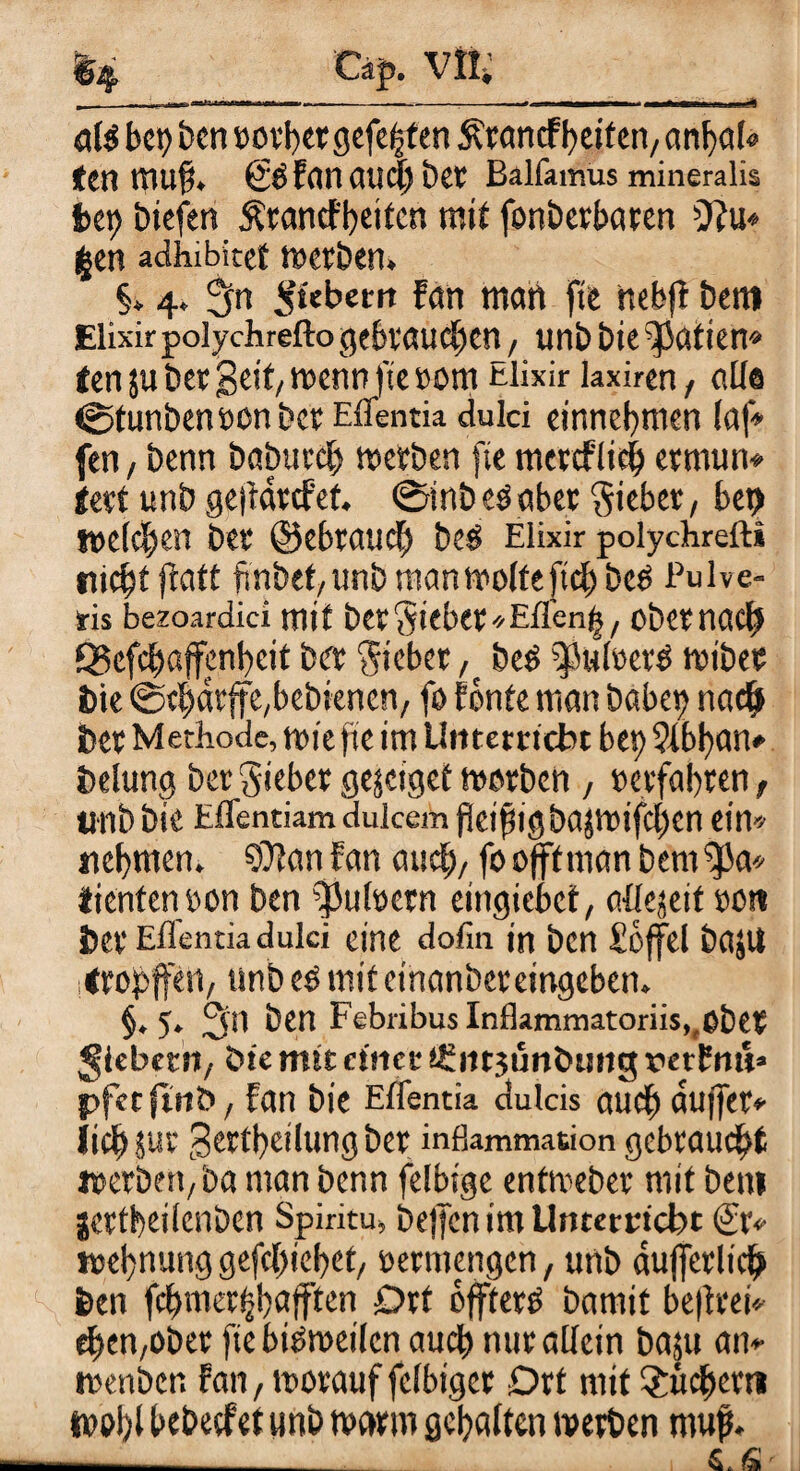 84 Cap. VII.
als bey den vorher gesetzten Kranckheiten, anhal-
ten muß. Es kan auch der Balsamus mineralis
bey diesen Kranckheiten mit sonderbaren Nu-
tzen adhibitet werden.
§. 4. Jn Fiebern kan man sie nebst dem
Elixir polychresto gebrauchen, und die Patien-
ten zu der Zeit, wenn sie vom Elixir laxiren, alle
Stunden von der Essentia dulci einnehmen las-
sen, denn dadurch werden sie mercklich ermun-
tert und gestärcket. Sind es aber Fieber, bey
welchen der Gebrauch des Elixir polychresti
nicht statt findet, und man wolte sich des Pulve-
ris bezoardici mit der Fieber-Essentz, oder nach
Beschaffenheit der Fieber, des Pulvers wider
die Schärffe, bedienen, so könte man dabey nach
der Methode, wie sie im Unterricht bey Abhan-
delung der Fieber gezeiget worden, verfahren,
und die Essentiam dulcem fleißig dazwischen ein-
nehmen. Man kan auch, so offt man dem Pa-
tienten von den Pulvern eingiebet, allezeit von
der Essentia dulci eine dosin in den Löffel dazu
tropffen, und es mit einander eingeben.
§. 5. Jn den Febribus Inflammatoriis, oder
Fiebern, die mit einer Entzündung verknü-
pfet sind, kan die Essentia dulcis auch äusser-
lich zur Zertheilung der inflammation gebraucht
werden, da man denn selbige entweder mit dem
zertheilenden Spiritu, dessen im Unterricht Er-
wehnung geschiehet, vermengen, und äusserlich
den schmertzhafften Ort öffters damit bestrei-
chen, oder sie bisweilen auch nur allein dazu an-
wenden kan, worauf selbiger Ort mit Tüchern
wohl bedecket und warm gehalten werden muß.
§. 6